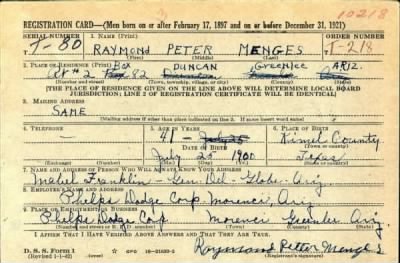 10218
REGISTRATION CARD—(Men born on or after February 17, 1897 and on or before December 31, 1921)
SERIAL NUMBER 1. NAME (Print) ORDER NUMBER
T-80 RAYMOND PETER MENGES T-218
(First) (Middle) (Last)
2. PLACE OF RESIDENCE (Print)
Rt #2 Box 82 DUNCAN Greenlee ARIZ.
(Number and street) (Town, township, village, or city) (County) (State)
[THE PLACE OF RESIDENCE GIVEN ON THE LINE ABOVE WILL DETERMINE LOCAL BOARD
JURISDICTION; LINE 2 OF REGISTRATION CERTIFICATE WILL BE IDENTICAL]
3. MAILING ADDRESS
SAME
(Mailing address if other than place indicated on line 2. If same insert word same)
4. TELEPHONE 5. AGE IN YEARS 6. PLACE OF BIRTH
41 County
DATE OF BIRTH
July 25 1900 Texas
(Exchange) (Number) (Mo.) (Day) (Yr.) (State or country)
7. NAME AND ADDRESS OF PERSON WHO WILL ALWAYS KNOW YOUR ADDRESS
Franklin - Gen. Del - Globe - Ariz
8. EMPLOYER'S NAME AND ADDRESS
Phelps Dodge Corp. Morenci, Ariz
9. PLACE OF EMPLOYMENT OR BUSINESS
Phelps Dodge Corp. Morenci Greenlee Ariz.
(Number and street or R. F. D. number) (Town) (County) (State)
I AFFIRM THAT I HAVE VERIFIED ABOVE ANSWERS AND THAT THEY ARE TRUE.
D. S. S. Form 1
(Revised 1-1-42) (over) GPO 16-21630-2
Raymond Peter Menges
(Registrant's signature)